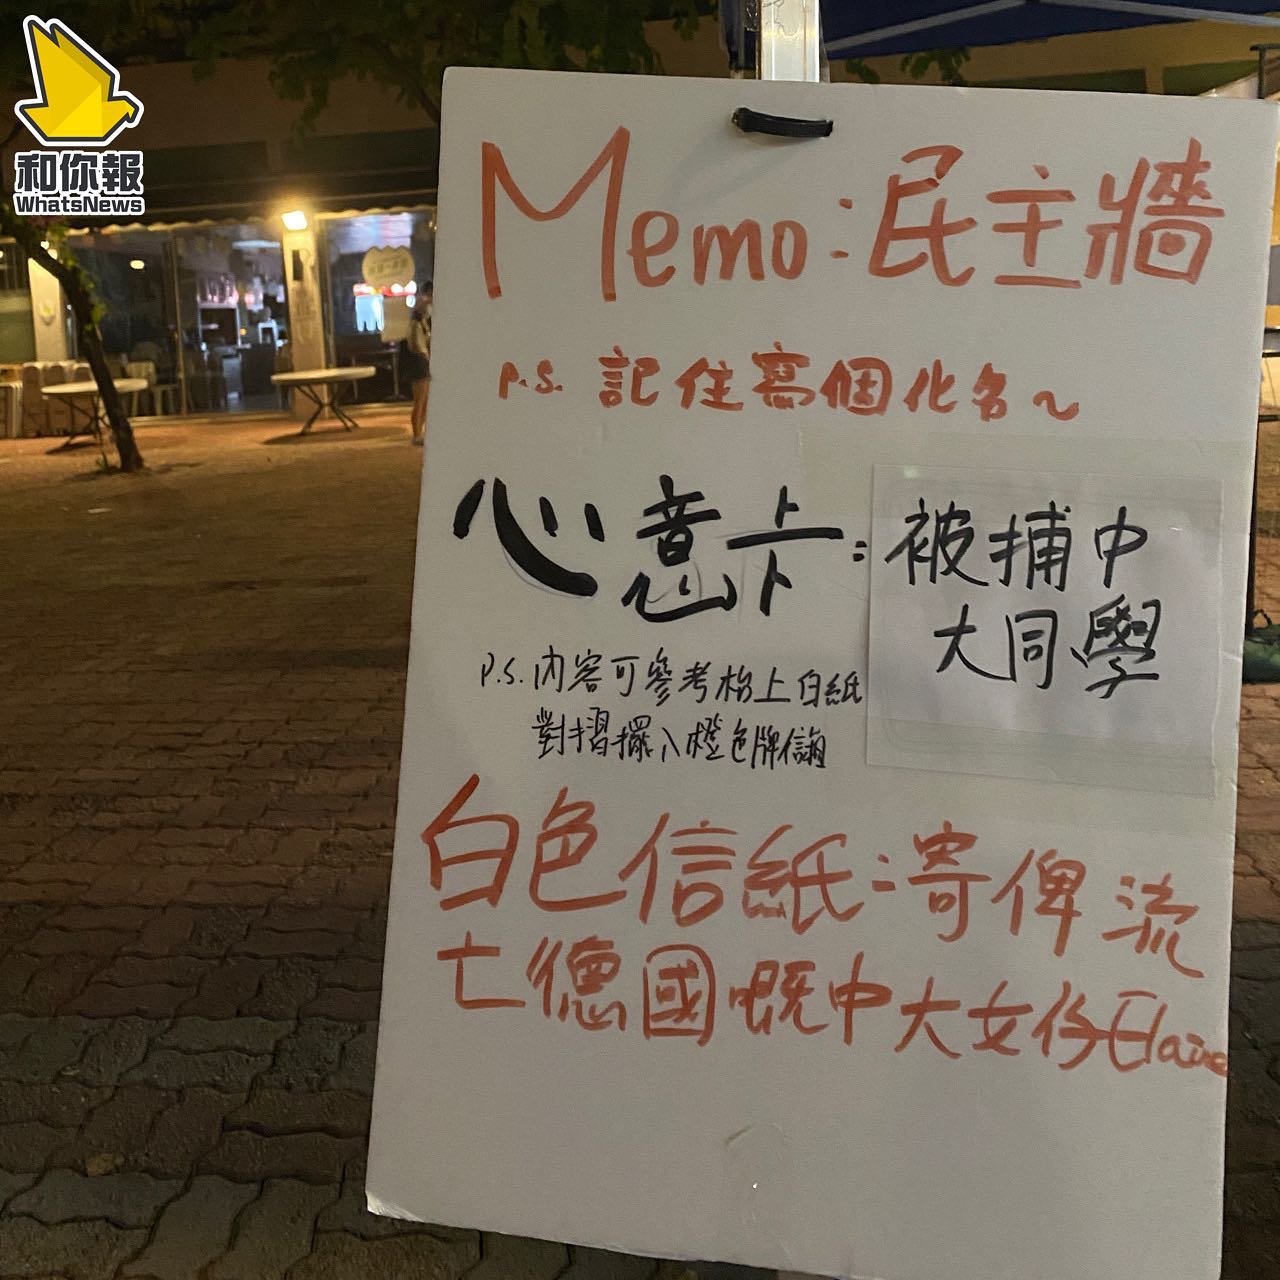 和你報
WhatsNews
Memo:民主牆
P.S. 記住寫個化名~
心意卡:
被捕中
大同學
P.S.內容可參考枱上白紙
對摺擺入橙色牌信箱
白色信紙:寄俾流
亡德國嘅中大女仔Elaine